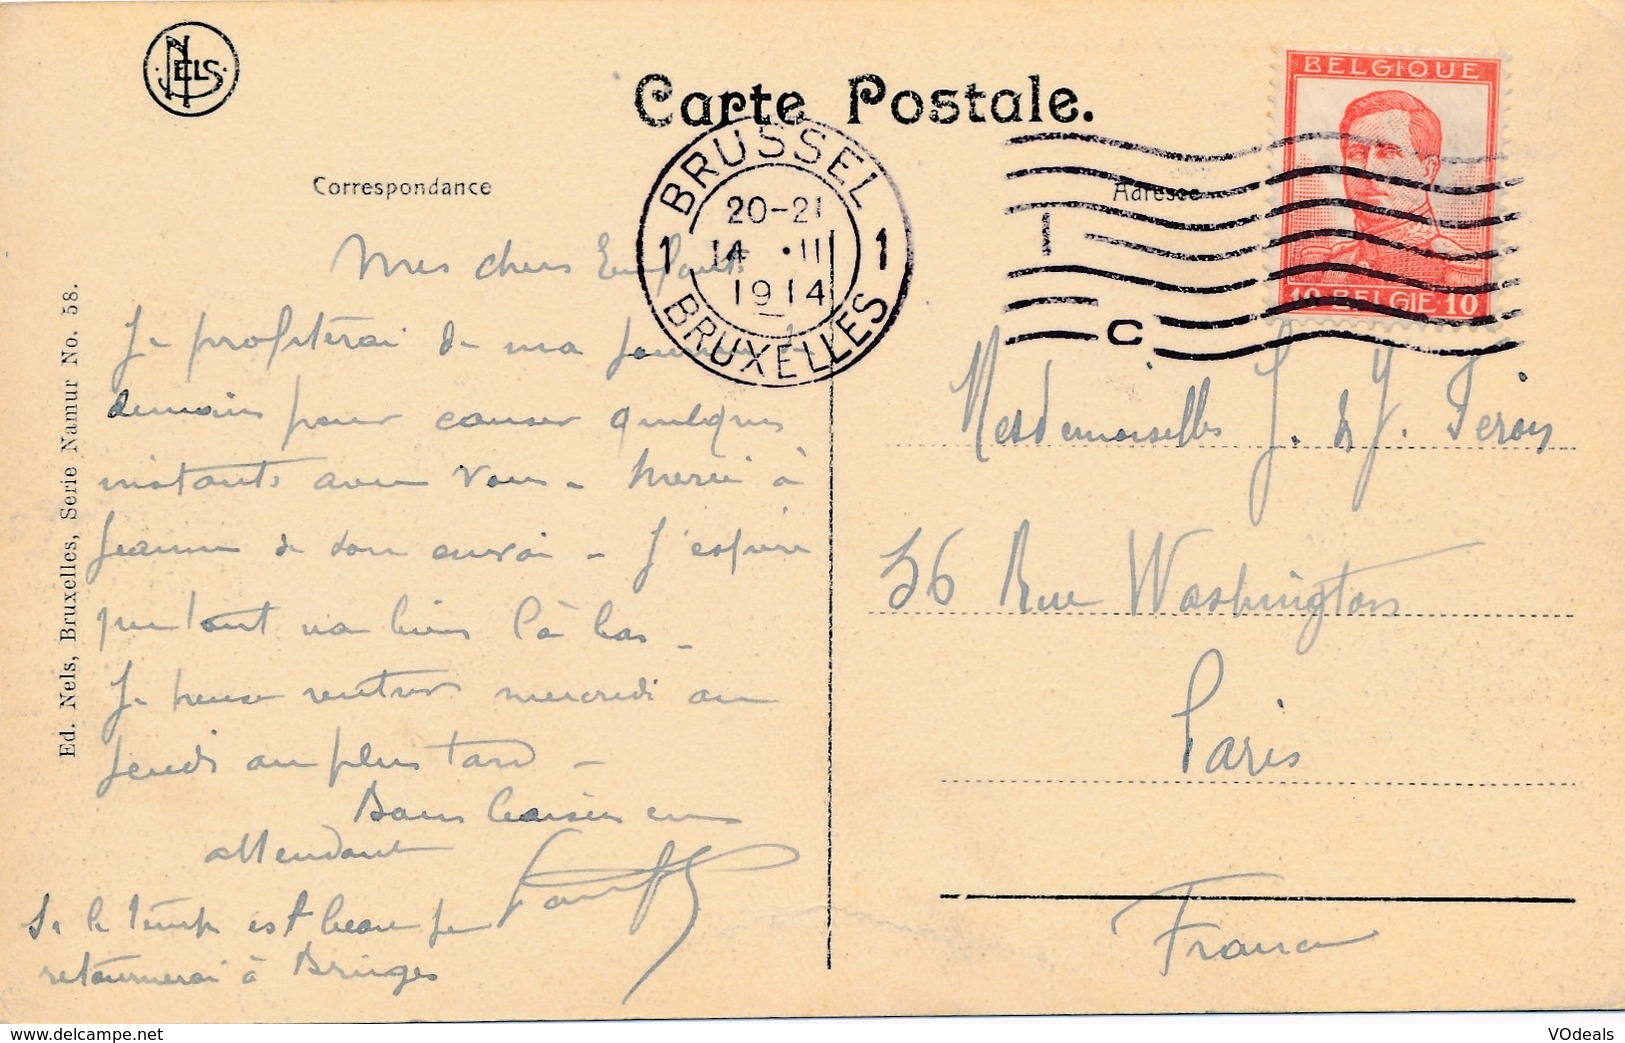 NELS
Carte Postale.
BELGIQUE
BRUSSEL
20-21
1 14 .II 1
1914
BRUXELLES
I
C
10 BELGIE 10
Correspondance
Adresse
Ed. Nels, Bruxelles, Serie Namur No. 58.
Mes chers Enfants
Je profiterai de ma journée de
demain pour causer quelques
instants avec vous - Merci à
Jeanne de son envoi - J'espère
que tout va bien là bas -
Je pense rentrer mercredi ou
jeudi au plus tard -
Bons baisers en
attendant
Si le temps est beau je
retournerai à Bruges
Mesdemoiselles J. & J.
56 Rue Washington
Paris
France
www.delcampe.net
VOdeals